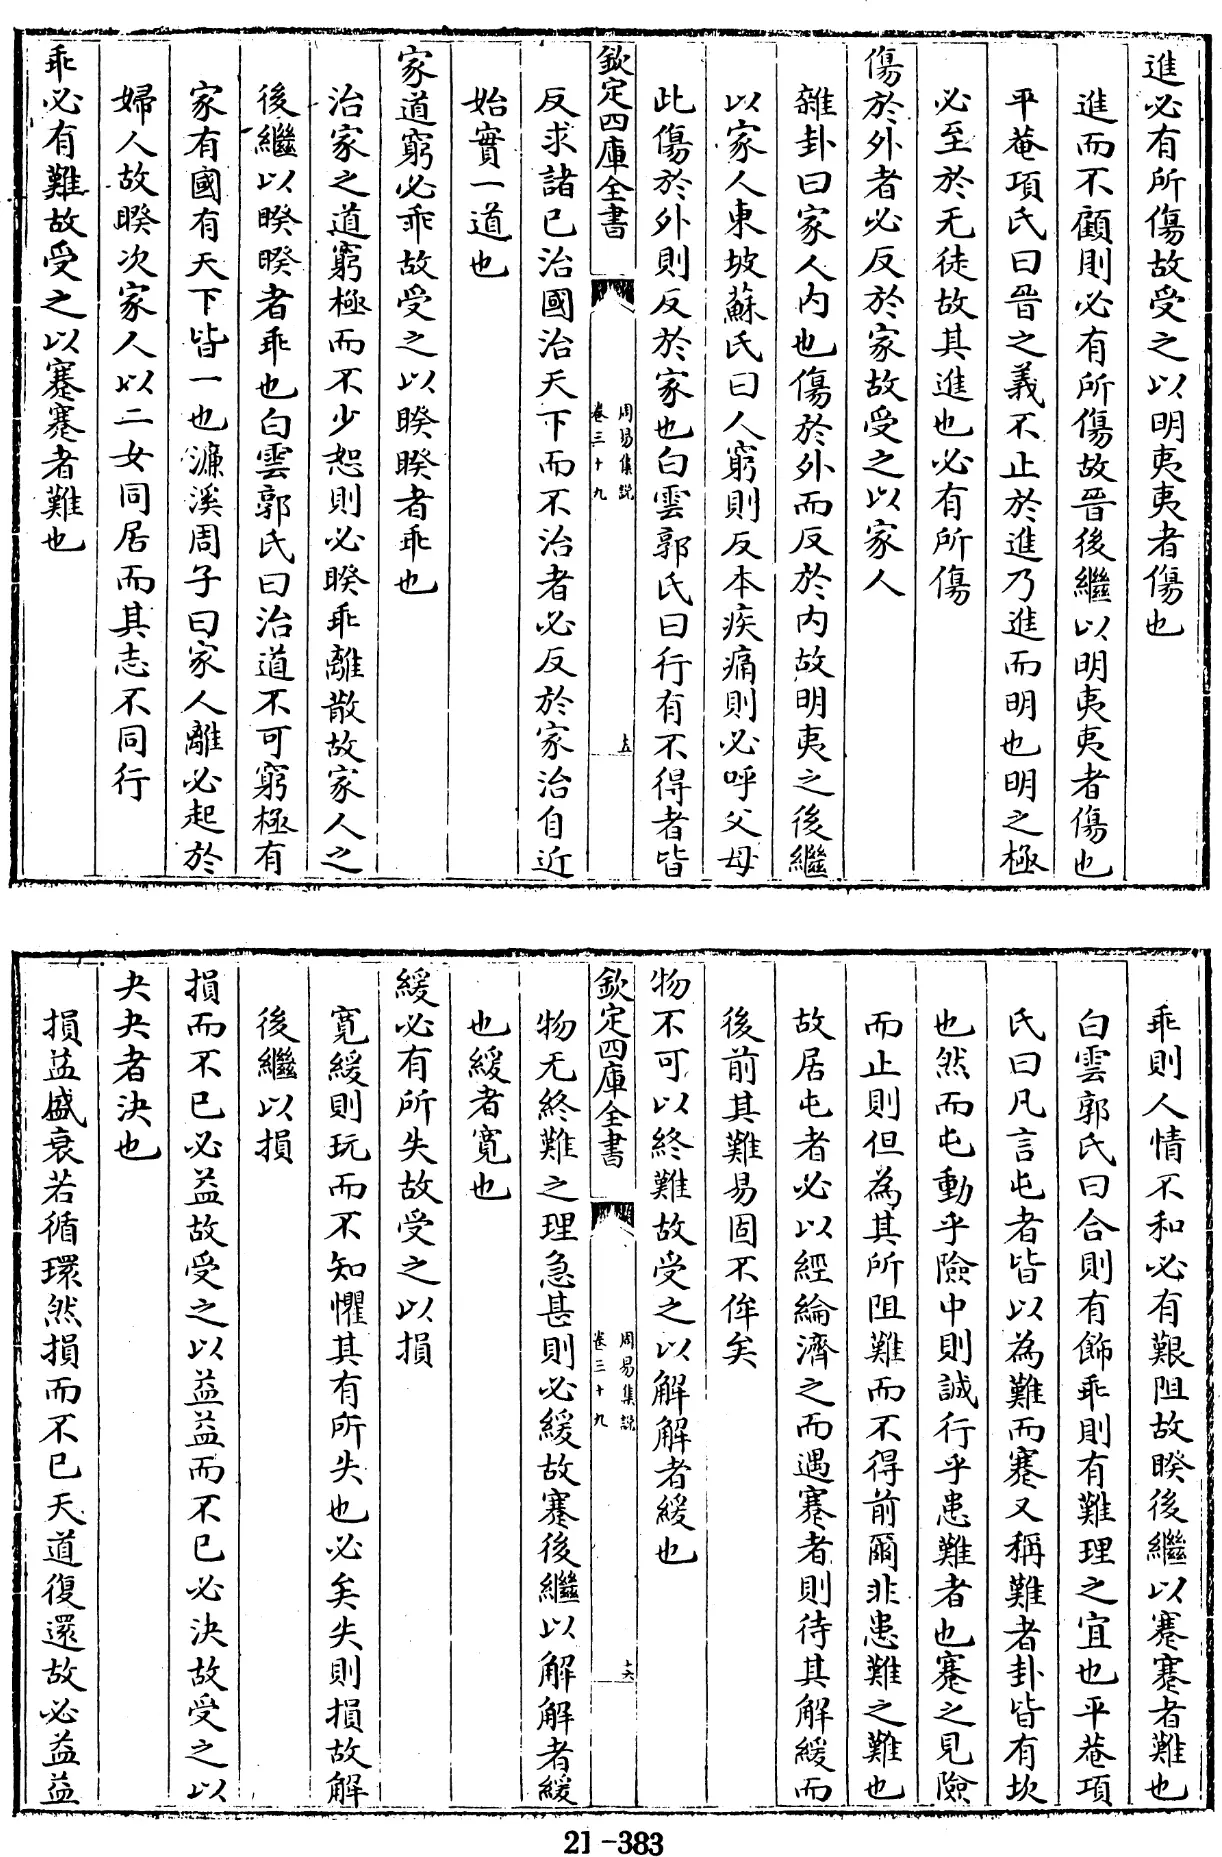 進必有所傷故受之以明夷夷者傷也
進而不顧則必有所傷故晉後繼以明夷夷者傷也
平菴項氏曰晉之義不止於進乃進而明也明之極
必至於无徒故其進也必有所傷
傷於外者必反於家故受之以家人
雜卦曰家人内也傷於外而反於内故明夷之後繼
以家人東坡蘇氏曰人窮則反本疾痛則必呼父母
此傷於外則反於家也白雲郭氏曰行有不得者皆
欽定四庫全書
周易集説
卷三十九
五
反求諸已治國治天下而不治者必反於家治自近
始實一道也
家道窮必乖故受之以睽睽者乖也
治家之道窮極而不少恕則必睽乖離散故家人之
後繼以睽睽者乖也白雲郭氏曰治道不可窮極有
家有國有天下皆一也濂溪周子曰家人離必起於
婦人故睽次家人以二女同居而其志不同行
乖必有難故受之以蹇蹇者難也
乖則人情不和必有艱阻故睽後繼以蹇蹇者難也
白雲郭氏曰合則有飾乖則有難理之宜也平菴項
氏曰凡言屯者皆以為難而蹇又稱難者卦皆有坎
也然而屯動乎險中則誠行乎患難者也蹇之見險
而止則但為其所阻難而不得前爾非患難之難也
故居屯者必以經綸濟之而遇蹇者則待其解緩而
後前其難易固不侔矣
物不可以終難故受之以解解者緩也
欽定四庫全書
周易集説
卷三十九
十六
物无終難之理急甚則必緩故蹇後繼以解解者緩
也緩者寛也
緩必有所失故受之以損
寛緩則玩而不知懼其有所失也必矣失則損故解
後繼以損
損而不已必益故受之以益益而不已必決故受之以
夬夬者決也
損益盛衰若循環然損而不已天道復還故必益益
21-383